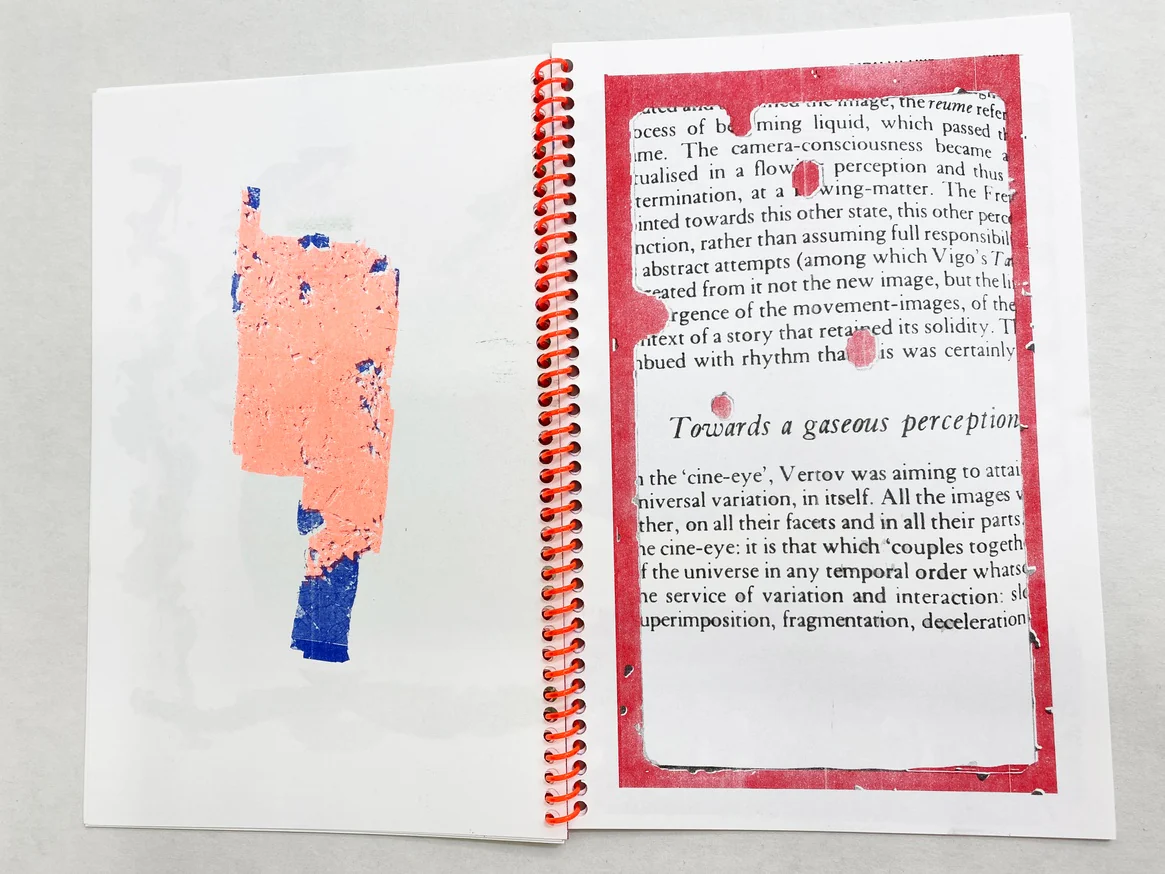 the image, the reume refer
ocess of be ming liquid, which passed
me. The camera-consciousness became a
tualised in a flow perception and thus
termination, at a wing-matter. The Fre
inted towards this other state, this other perce
nction, rather than assuming full responsibil
abstract attempts (among which Vigo's Ta
eated from it not the new image, but the li
rgence of the movement-images, of the
ntext of a story that retained its solidity. T
bued with rhythm tha is was certainly
Towards a gaseous perception
n the ‘cine-eye’, Vertov was aiming to attai
niversal variation, in itself. All the images v
ther, on all their facets and in all their parts.
he cine-eye: it is that which ‘couples togeth
f the universe in any temporal order whatso
he service of variation and interaction: slo
uperimposition, fragmentation, deceleration